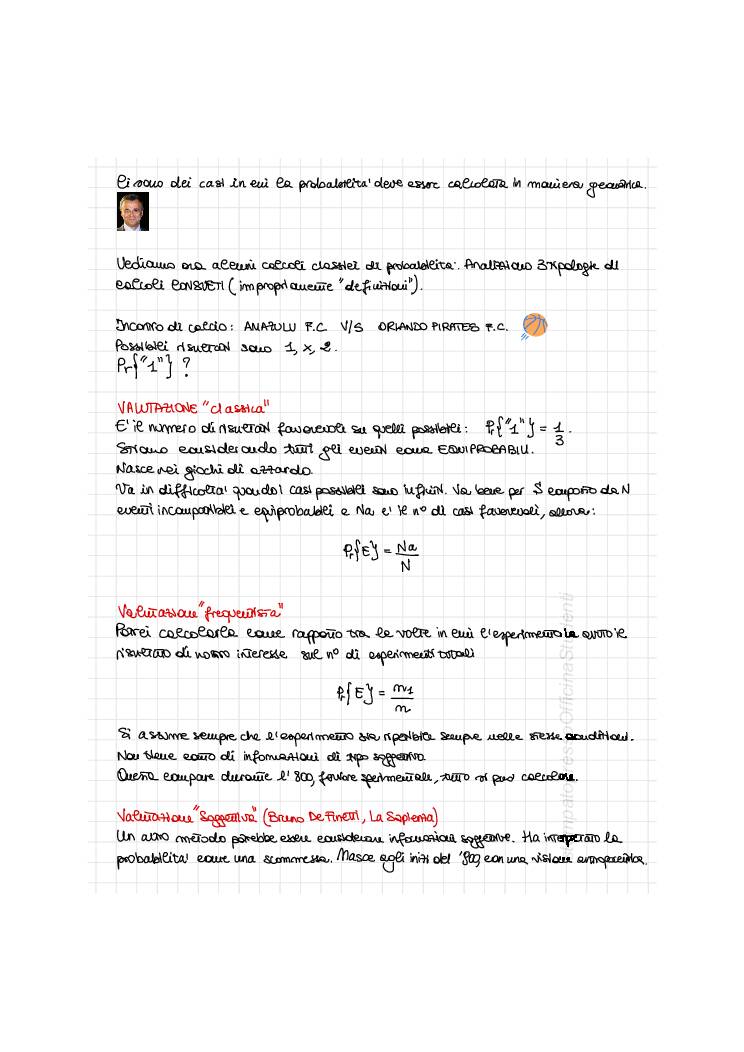 Ci sono dei casi in cui la probabilita' deve essere calcolata in maniera geometrica.
Vediamo ora alcuni calcoli classici di probabilita'. Analizziamo 3 tipologie di
calcoli CONSUETI (impropriamente "definizioni").
Incontro di calcio: AMAZULU F.C. V/S ORLANDO PIRATES F.C.
Possibili risultati sono 1, x, 2.
Pr{"1"} ?
VALUTAZIONE "classica"
E' il numero di risultati favorevoli su quelli possibili: Pr{"1"} = 1/3.
Stiamo considerando tutti gli eventi come EQUIPROBABILI.
Nasce nei giochi di azzardo.
Va in difficolta' quando i casi possibili sono infiniti. Va bene per S composto da N
eventi incompatibili e equiprobabili e Na e' il n° di casi favorevoli, allora:
Pr{E} = Na/N
Valutazione "frequentista"
Potrei calcolarla come rapporto tra le volte in cui l'esperimento ha avuto il
risultato di nostro interesse sul n° di esperimenti totali
Pr{E} = n1/n
Si assume sempre che l'esperimento sia ripetibile sempre nelle stesse condizioni.
Non tiene conto di informazioni di tipo soggettivo.
Questa compare durante l'800, fervore sperimentale, tutto si puo' calcolare.
Valutazione "Soggettiva" (Bruno De Finetti, La Sapienza)
Un altro metodo potrebbe essere considerare informazioni soggettive. Ha interpretato la
probabilita' come una scommessa. Nasce agli inizi del '900, con una visione antropocentrica.